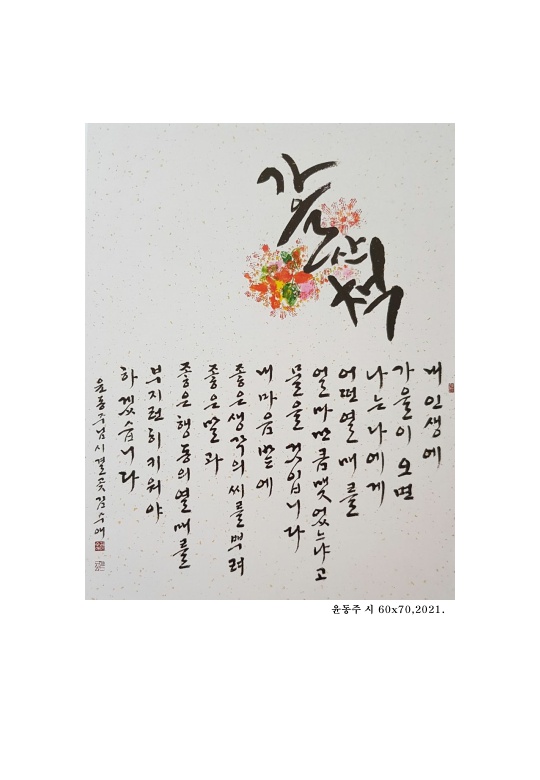 가을산책
내 인생에
가을이 오면
나는 나에게
어떤 열매를
얼마만큼 맺었느냐고
물을 것입니다
내 마음밭에
좋은 생각의 씨를 뿌려
좋은 말과
좋은 행동의 열매를
부지런히 키워야
하겠습니다
윤동주님 시 결곳 김수애
윤동주 시 60x70,2021.